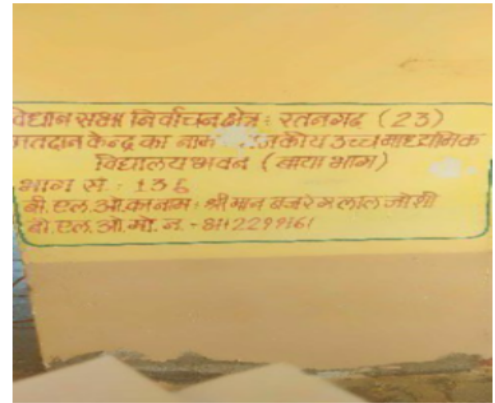 विधान सभा निर्वाचन क्षेत्र : रतनगढ (23)
मतदान केन्द्र का नाम राजकीय उच्च माध्यमिक
विद्यालय भवन (बाया भाग)
भाग सं. : 136
बी.एल.ओ.का नाम : श्रीमान बजरंग लाल जोशी
बी.एल.ओ.मो.न. -